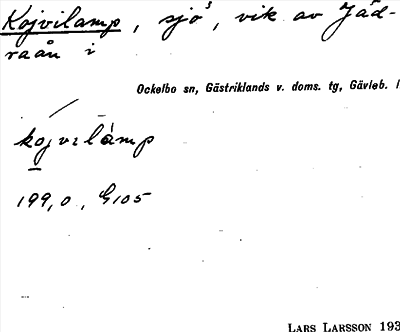 Kojvilamp, sjö³, vik av Jäd-
raån i
Ockelbo sn, Gästriklands v. doms. tg, Gävleb. l
kojvɩlàmp
199,0, G105
LARS LARSSON 193